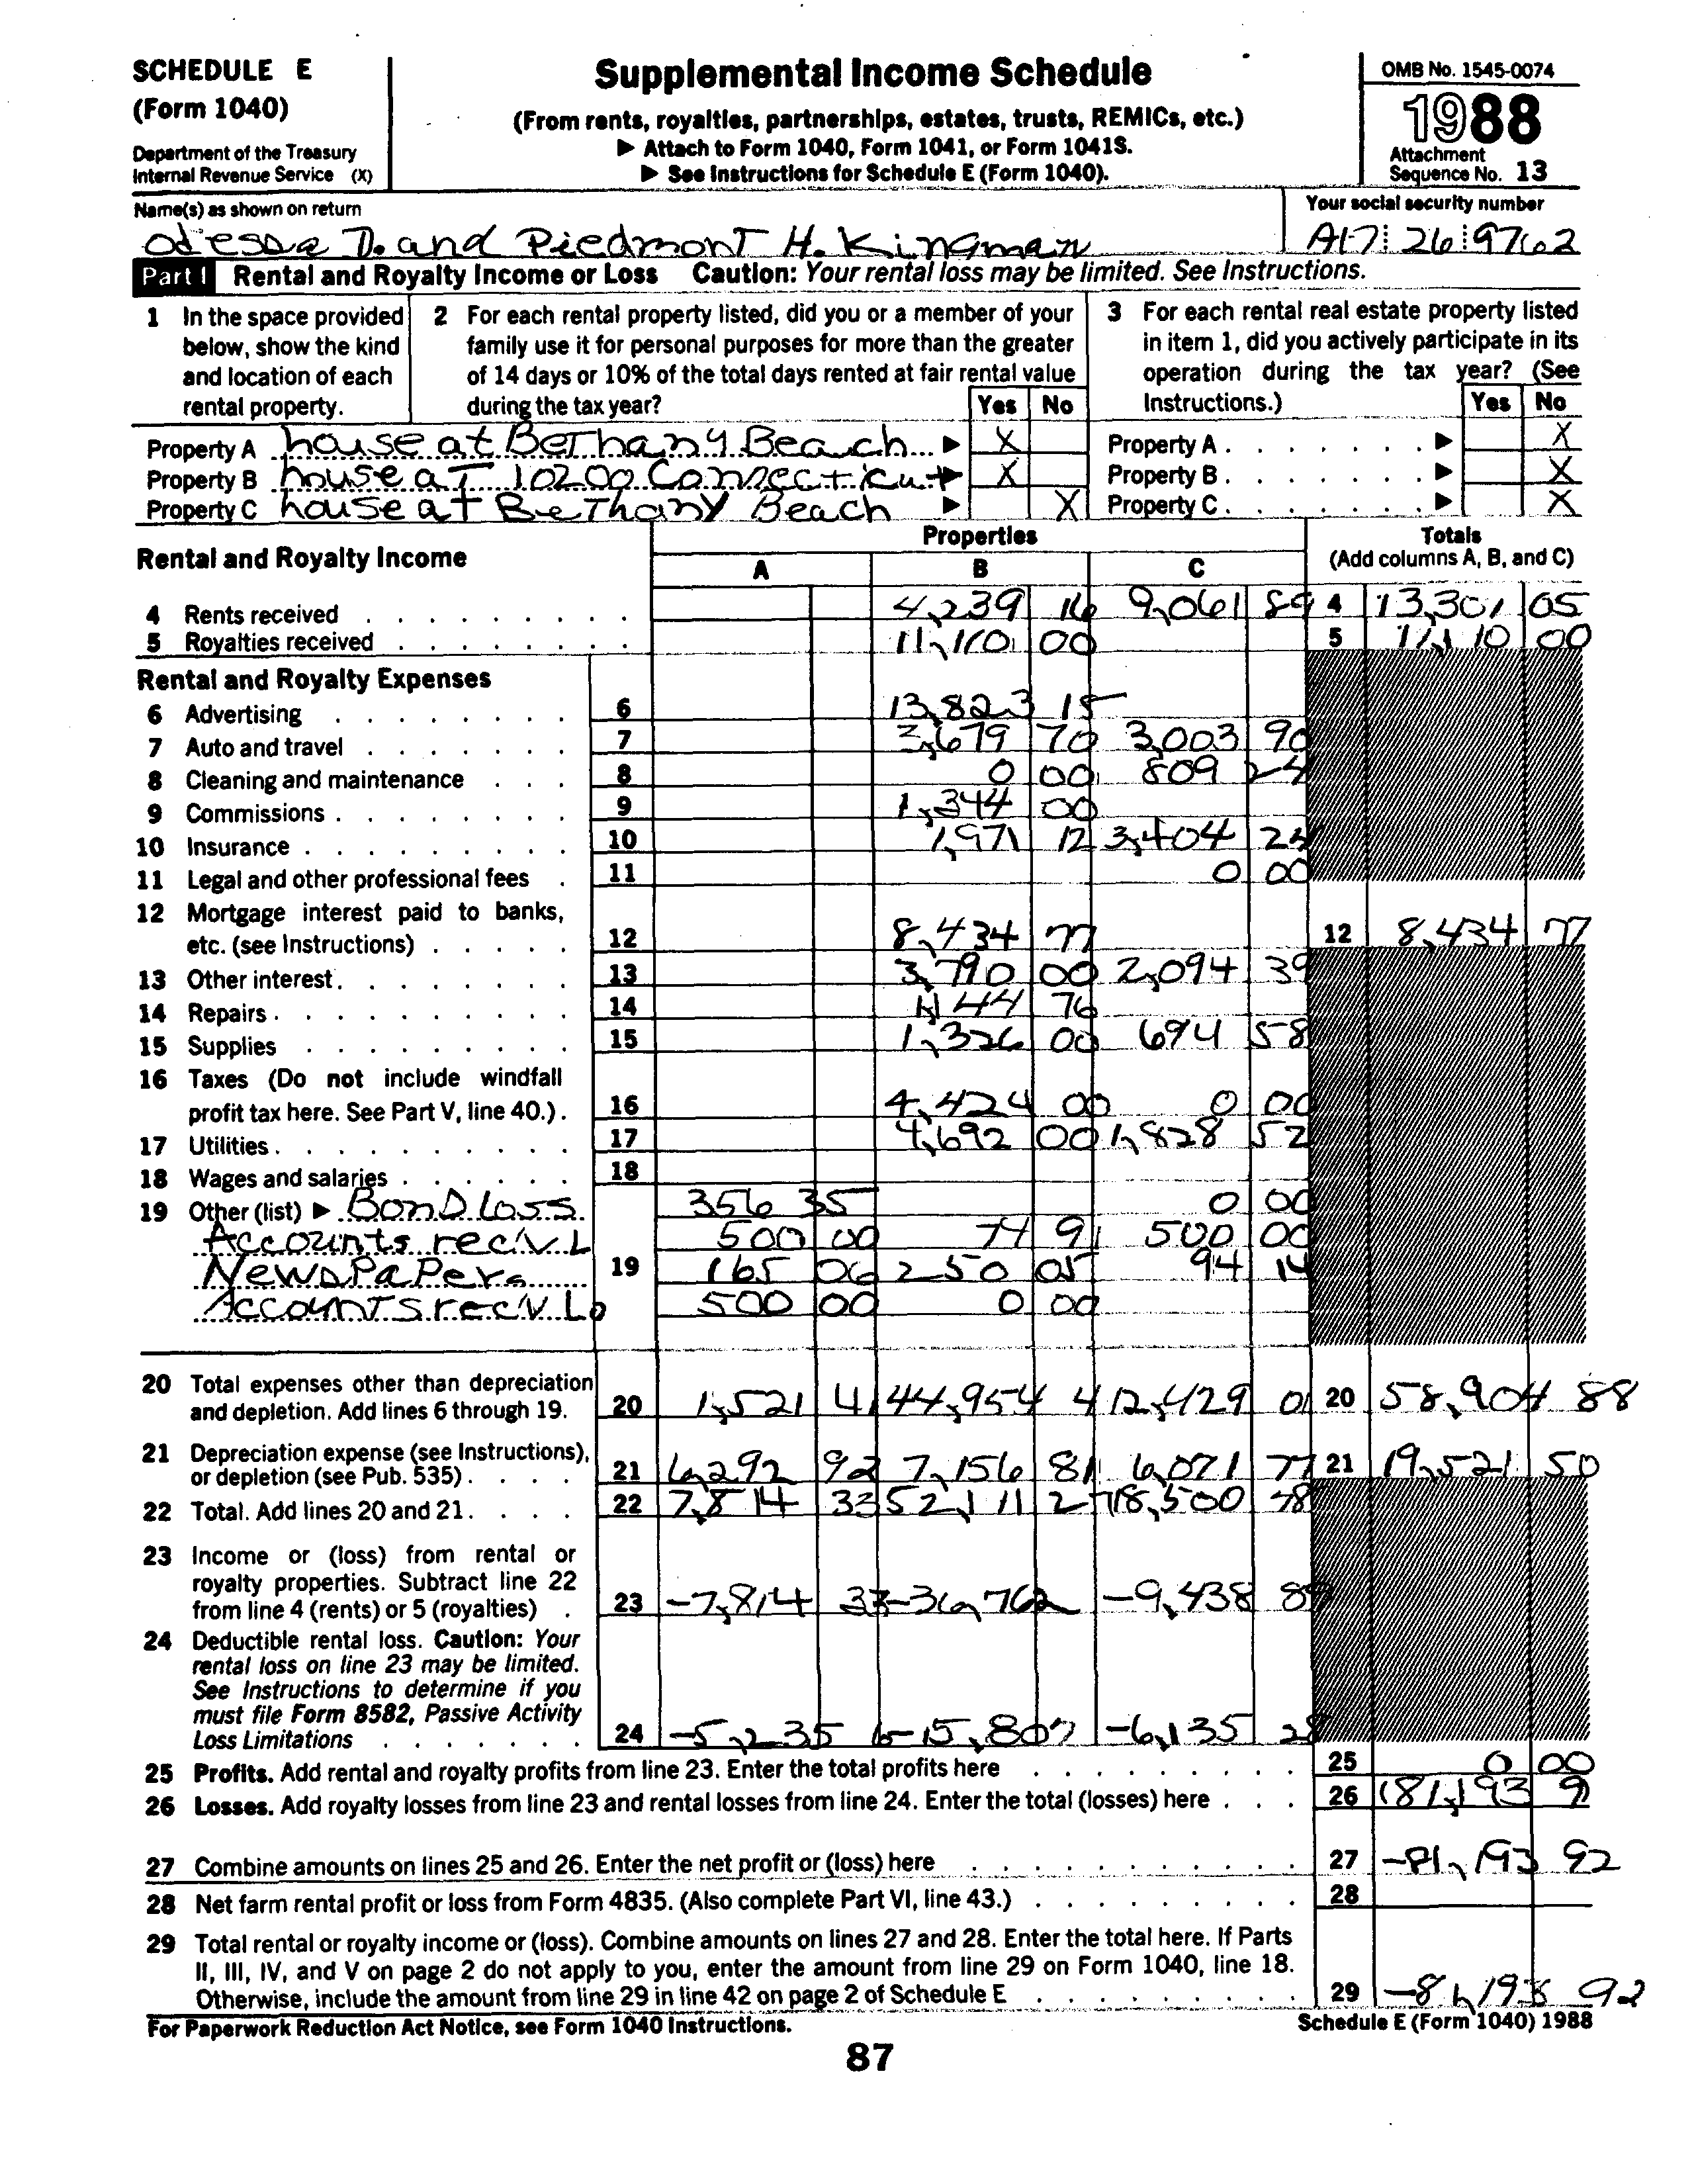 SCHEDULE E
(Form 1040)
Department of the Treasury
Internal Revenue Service (X)
Supplemental Income Schedule
(From rents, royalties, partnerships, estates, trusts, REMICs, etc.)
▶ Attach to Form 1040, Form 1041, or Form 1041S.
▶ See Instructions for Schedule E (Form 1040).
OMB No. 1545-0074
1988
Attachment
Sequence No. 13
Name(s) as shown on return
Odessa D. and Piedmont H. Kingman
Your social security number
A17 26 9762
Part I Rental and Royalty Income or Loss Caution: Your rental loss may be limited. See Instructions.
1 In the space provided
below, show the kind
and location of each
rental property.
2 For each rental property listed, did you or a member of your
family use it for personal purposes for more than the greater
of 14 days or 10% of the total days rented at fair rental value
during the tax year? Yes No
3 For each rental real estate property listed
in item 1, did you actively participate in its
operation during the tax year? (See
Instructions.) Yes No
Property A house at Bethany Beach ▶ X Property A ▶ X
Property B house at 10200 Connecticut ▶ X Property B ▶ X
Property C house at Bethany Beach ▶ X Property C ▶ X
Rental and Royalty Income
Properties
A B C
Totals
(Add columns A, B, and C)
4 Rents received 4,239 16 9,061 89 4 13,301 05
5 Royalties received 11,110 00 5 11,110 00
Rental and Royalty Expenses
6 Advertising 6 13,823 15
7 Auto and travel 7 3,679 70 3,003 90
8 Cleaning and maintenance 8 0 00 809 24
9 Commissions 9 1,344 00
10 Insurance 10 1,971 12 3,404 24
11 Legal and other professional fees 11 0 00
12 Mortgage interest paid to banks,
etc. (see Instructions) 12 8,434 77 12 8,434 77
13 Other interest 13 3,790 00 2,094 39
14 Repairs 14 1,144 76
15 Supplies 15 1,326 00 694 58
16 Taxes (Do not include windfall
profit tax here. See Part V, line 40.) 16 4,424 00 0 00
17 Utilities 17 4,692 00 1,828 52
18 Wages and salaries 18
19 Other (list) ▶ Bond loss 356 35 0 00
Accounts reciv. L 500 00 74 91 500 00
Newspapers 19 165 06 250 05 94 14
Accounts reciv. Lo 500 00 0 00
20 Total expenses other than depreciation
and depletion. Add lines 6 through 19. 20 1,521 41 44,954 4 12,429 01 20 58,904 88
21 Depreciation expense (see Instructions),
or depletion (see Pub. 535) 21 6,292 92 7,156 81 6,071 77 21 19,521 50
22 Total. Add lines 20 and 21. 22 7,814 33 52,111 27 18,500 78
23 Income or (loss) from rental or
royalty properties. Subtract line 22
from line 4 (rents) or 5 (royalties) 23 -7,814 33 -36,762 -9,438 89
24 Deductible rental loss. Caution: Your
rental loss on line 23 may be limited.
See Instructions to determine if you
must file Form 8582, Passive Activity
Loss Limitations 24 -5,235 6 -15,807 -6,135 28
25 Profits. Add rental and royalty profits from line 23. Enter the total profits here 25 0 00
26 Losses. Add royalty losses from line 23 and rental losses from line 24. Enter the total (losses) here 26 (81,193 9)
27 Combine amounts on lines 25 and 26. Enter the net profit or (loss) here 27 -81,193 92
28 Net farm rental profit or loss from Form 4835. (Also complete Part VI, line 43.) 28
29 Total rental or royalty income or (loss). Combine amounts on lines 27 and 28. Enter the total here. If Parts
II, III, IV, and V on page 2 do not apply to you, enter the amount from line 29 on Form 1040, line 18.
Otherwise, include the amount from line 29 in line 42 on page 2 of Schedule E 29 -81,193 92
For Paperwork Reduction Act Notice, see Form 1040 Instructions. Schedule E (Form 1040) 1988
87